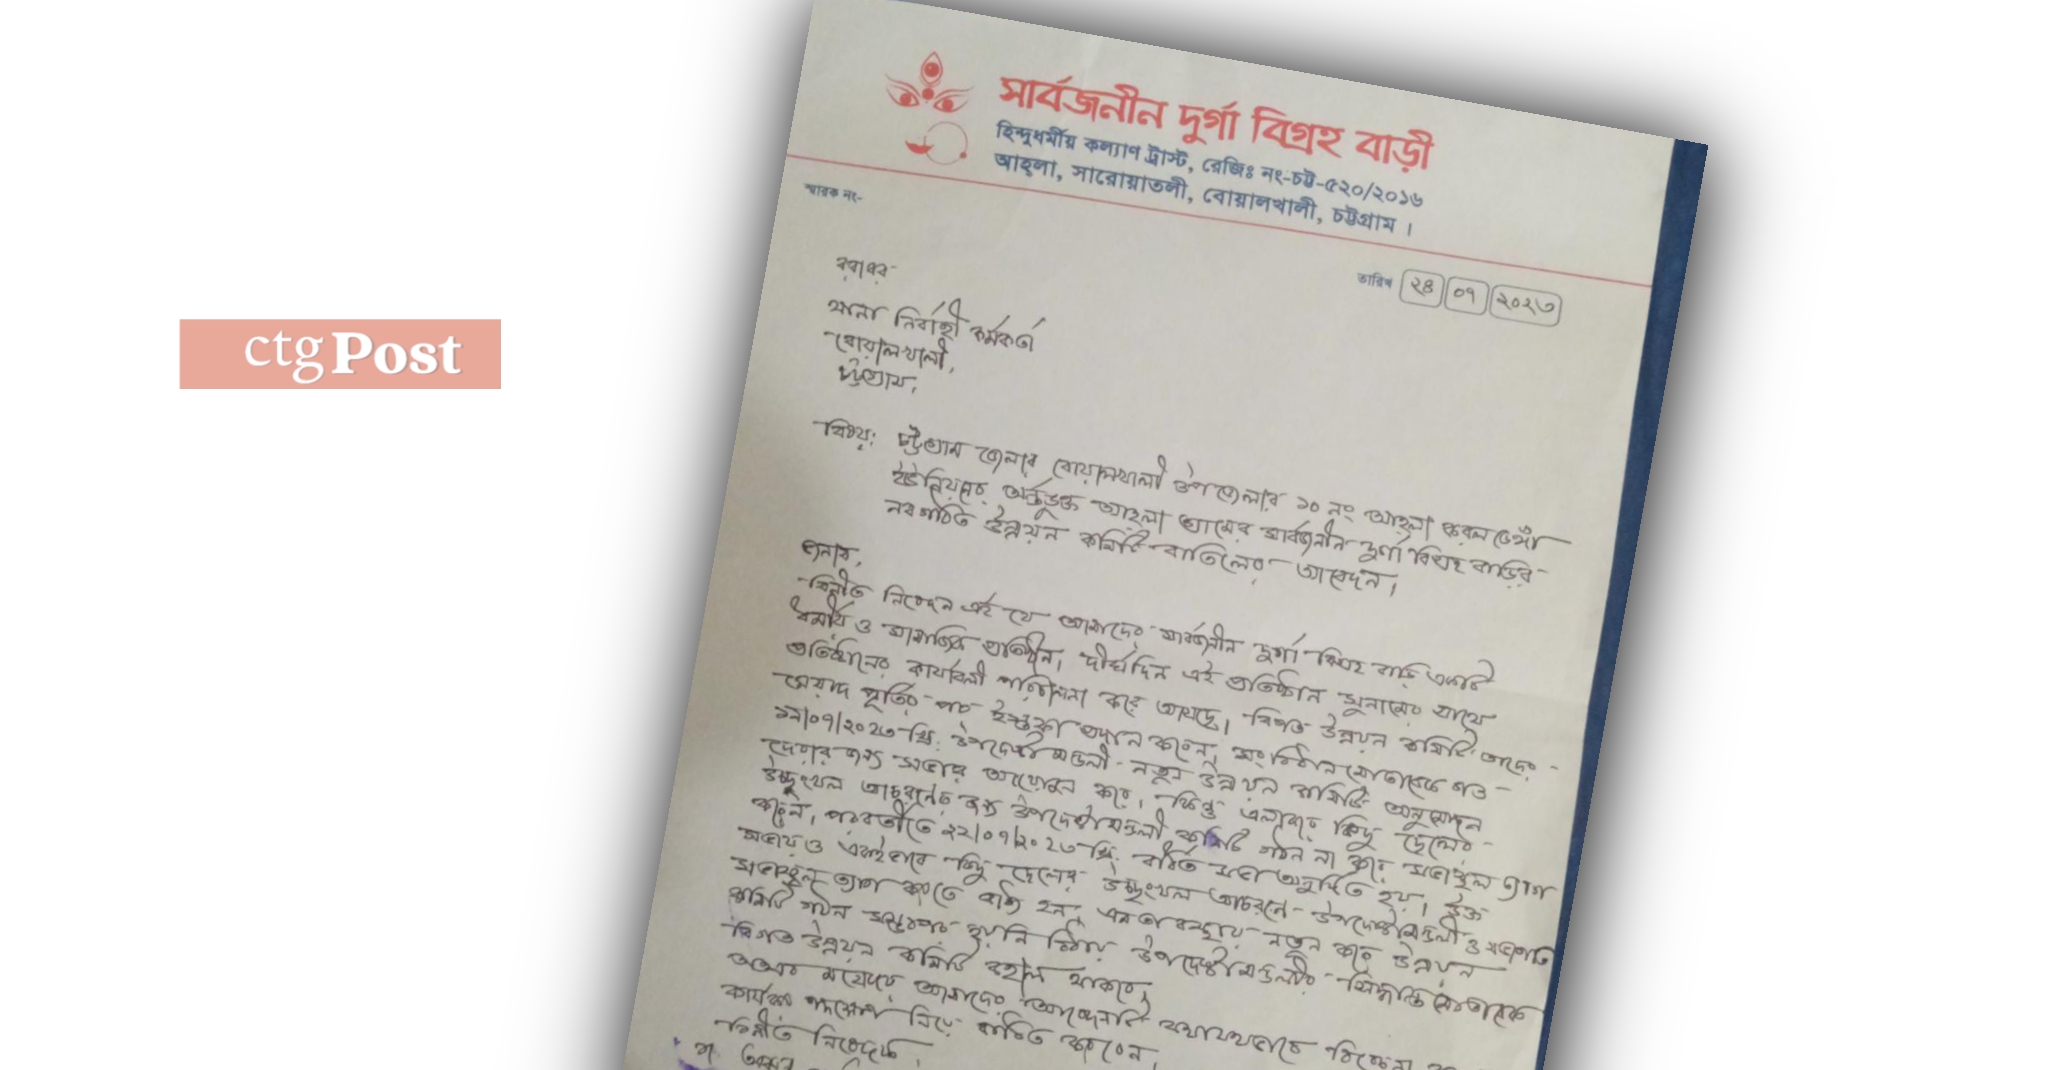 ctgPost
সার্বজনীন দুর্গা বিগ্রহ বাড়ী
হিন্দুধর্মীয় কল্যাণ ট্রাস্ট, রেজিঃ নং-চট্ট-৫২০/২০১৬
আহ্লা, সারোয়াতলী, বোয়ালখালী, চট্টগ্রাম ।
স্মারক নং-
তারিখ ২৪ ০৭ ২০২৩
বরাবর
থানা নির্বাহী কর্মকর্তা
বোয়ালখালী,
চট্টগ্রাম,
বিষয়: চট্টগ্রাম জেলার বোয়ালখালী উপজেলার ১০ নং আহ্লা করলডেঙ্গা
ইউনিয়নের অর্ন্তভূক্ত আহ্লা গ্রামের সার্বজনীন দুর্গা বিগ্রহ বাড়ির
নবগঠিত উন্নয়ন কমিটি বাতিলের আবেদন।
জনাব,
বিনীত নিবেদন এই যে আমাদের সার্বজনীন দুর্গা বিগ্রহ বাড়ি একটি
ধর্মীয় ও সামাজিক প্রতিষ্ঠান। দীর্ঘদিন এই প্রতিষ্ঠান সুনামের সাথে
প্রতিষ্ঠানের কার্যাবলী পরিচালনা করে আসছে। বিগত উন্নয়ন কমিটি তাদের
মেয়াদ পূর্তির পর ইস্তফা প্রদান করেন, সংবিধান মোতাবেক গত
/০৭/২০২৩ খ্রি: উপদেষ্টা মন্ডলী নতুন উন্নয়ন কমিটি অনুমোদন
দেওয়ার জন্য সভার আয়োজন করে। কিন্তু এলাকার কিছু ছেলের
উচ্ছৃংখল আচরনের জন্য উপদেষ্টামন্ডলী কমিটি গঠন না করে সভাস্থল ত্যাগ
করেন, পরবর্তীতে ২২/০৭/২০২৩ খ্রি: বর্ধিত সভা অনুষ্ঠিত হয়। উক্ত
সভায় ও একইভাবে কিছু ছেলের উচ্ছৃংখল আচরনে উপদেষ্টামন্ডলী ও সভাপতি
সভাস্থল ত্যাগ করতে বাধ্য হন, এমতাবস্থায় নতুন করে উন্নয়ন
কমিটি গঠন সম্ভবপর হয়নি বিধায় উপদেষ্টামন্ডলীর সিদ্ধান্ত মোতাবেক
বিগত উন্নয়ন কমিটি বহাল থাকবে,
অতএব মহোদয় আমাদের আবেদনটি যথাযথভাবে বিবেচনা
কার্যকর পদক্ষেপ নিয়ে বাধিত করবেন,
বিনীত নিবেদক,